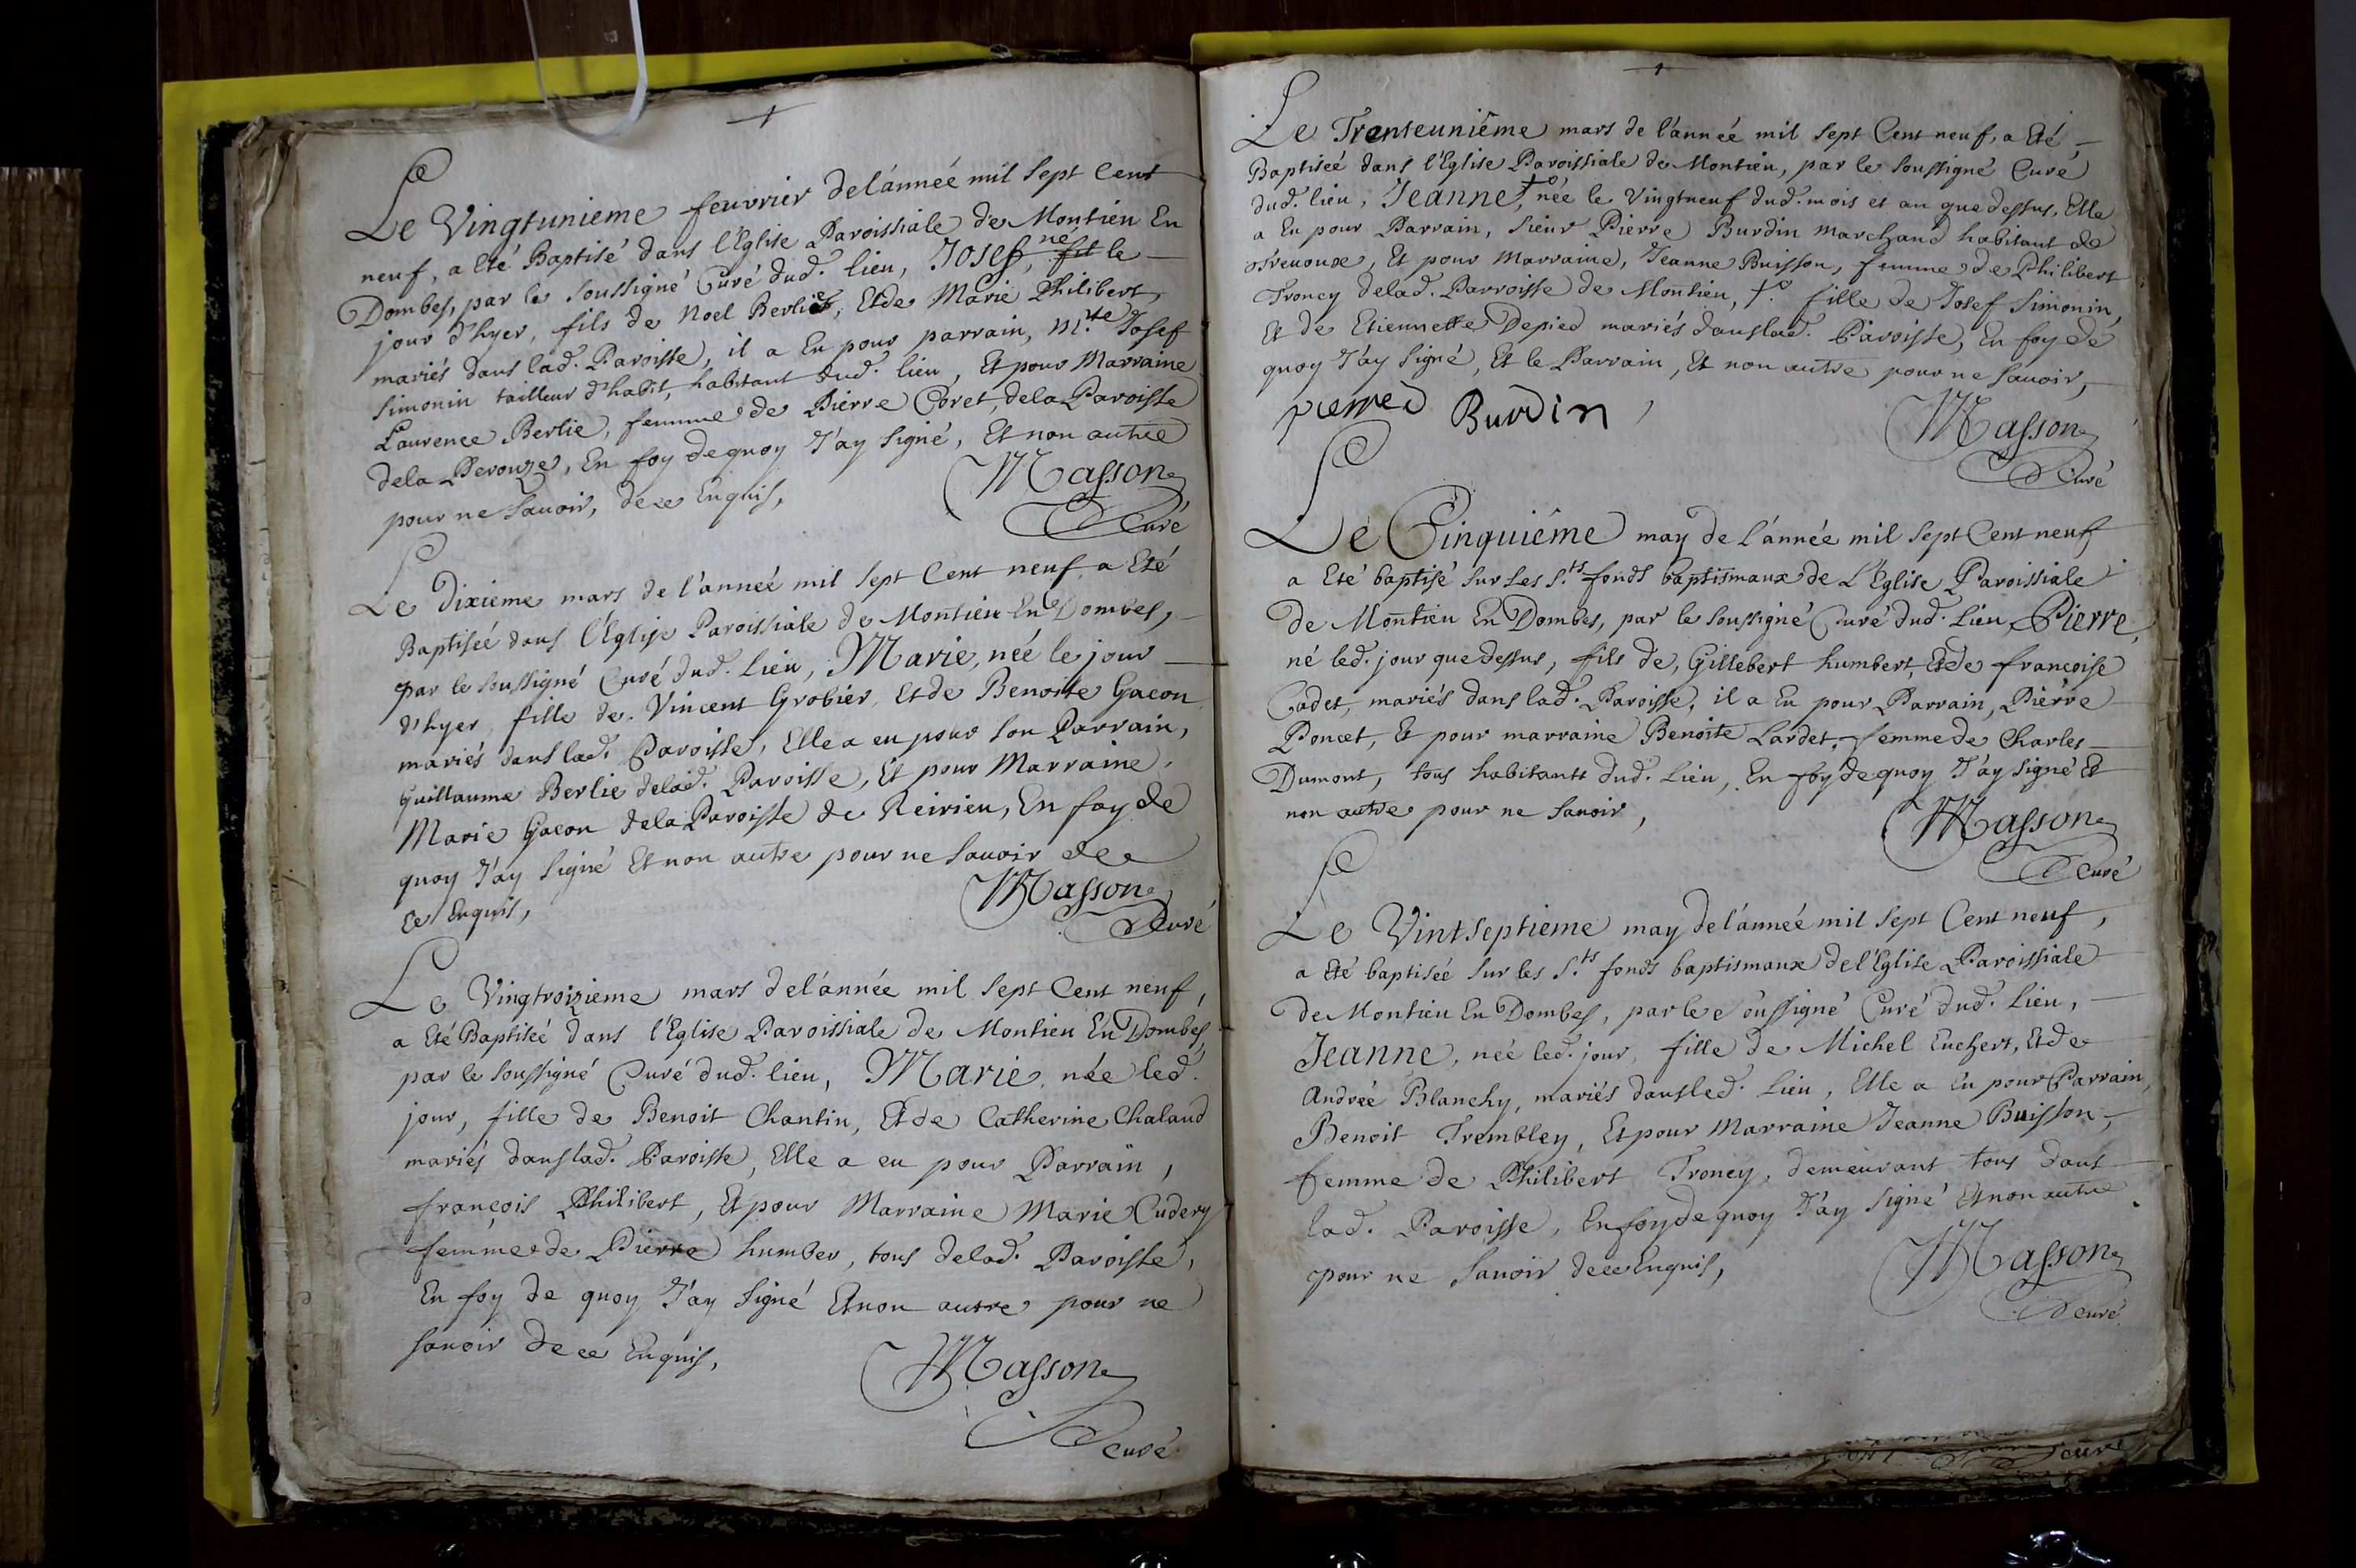 Le Vingtunieme feuvrier de l'année mil sept Cent
neuf, a Eté Baptisé dans l'Eglise Paroissiale de Montieu En
Dombes, par le soussigné Curé dud. lieu, Josef, né le
jour d'hyer, fils de Noel Berlie, Et de Marie Philibert,
mariés dans lad. Paroisse, il a Eu pour parrain, M.tre Josef
Simonin tailleur d'habit, habitant dud. lieu, Et pour Marraine
Laurence Berlie, femme de Pierre Coret, de la Paroisse
de la Perouze, En foy de quoy J'ay signé, Et non autre
pour ne sauoir, de ce Enquis,
Masson
Curé
Le dixieme mars de l'anneé mil sept Cent neuf a Eté
Baptiseé dans l'Eglise Paroissiale de Montieu En Dombes,
par le soussigné Curé dud. lieu, Marie, neé le jour
d'hyer, fille de Vincent Grobier, Et de Benoite Gacon
mariés dans lad. Paroisse, Elle a eu pour son Parrain,
Guillaume Berlie de lad. Paroisse, Et pour Marraine,
Marie Gacon de la Paroisse de Reirieu, En foy de
quoy J'ay signé Et non autre pour ne sauoir de
ce Enquis,
Masson
Curé
Le Vingtroizieme mars de l'année mil sept Cent neuf,
a Eté Baptiseé dans l'Eglise Paroissiale de Montieu En Dombes,
par le soussigné Curé dud. lieu, Marie, née led.
jour, fille de Benoit Chantin, Et de Catherine Chaland
mariés dans lad. Paroisse, Elle a eu pour Parrain,
françois Philibert, Et pour Marraine Marie Cudery
femme de Pierre humber, tous de lad. Paroisse,
En foy de quoy J'ay signé Et non autre pour ne
sauoir de ce Enquis,
Masson
Curé
Le Trenteuniême mars de l'anneé mil sept Cent neuf, a Eté
Baptiseé dans l'Eglise Paroissiale de Montieu, par le soussigné Curé
dud. lieu, Jeanne, née le Vingtneuf dud. mois et an que dessus, Elle
a Eu pour Parrain, sieur Pierre Burdin marchand habitant de
Treuoux, Et pour Marraine, Jeanne Buisson, femme de Philibert
Troncy de lad. Parroisse de Montieu, fille de Josef Simonin,
Et de Etiennette Depied mariés dans lad. Paroisse, En foy de
quoy J'ay signé, Et le Parrain, Et non autre pour ne sauoir,
pierre Burdin
Masson
Curé
Le Cinquiême may de l'année mil sept Cent neuf
a Eté baptisé sur Les S.ts fonds baptismaux de L'Eglise Paroissiale
de Montieu En Dombes, par le soussigné Curé dud. Lieu, Pierre,
né led. jour que dessus, fils de, Gillebert humbert, Et de francoise
Cadet, mariés dans lad. Paroisse, il a Eu pour Parrain, Pierre
Poncet, Et pour marraine Benoîte Lardet, femme de Charles
Dumont, tous habitants dud. Lieu, En foy de quoy J'ay signé Et
non autre pour ne sauoir,
Masson
Curé
Le Vintseptieme may de l'anneé mil sept Cent neuf,
a Eté baptiseé sur les S.ts fonds baptismaux de l'Eglise Paroissiale
de Montieu En Dombes, par le soussigné Curé dud. Lieu,
Jeanne, neé led. jour, fille de Michel Euchert, Et de
Andreé Blanchy, mariés dans led. Lieu, Elle a Eu pour Parrain,
Benoit Trembley, Et pour Marraine Jeanne Buisson,
femme de Philibert Troncy, demeurant tous dans
lad. Paroisse, En foy de quoy J'ay signé Et non autre
pour ne sauoir de ce Enquis,
Masson
Curé
curé